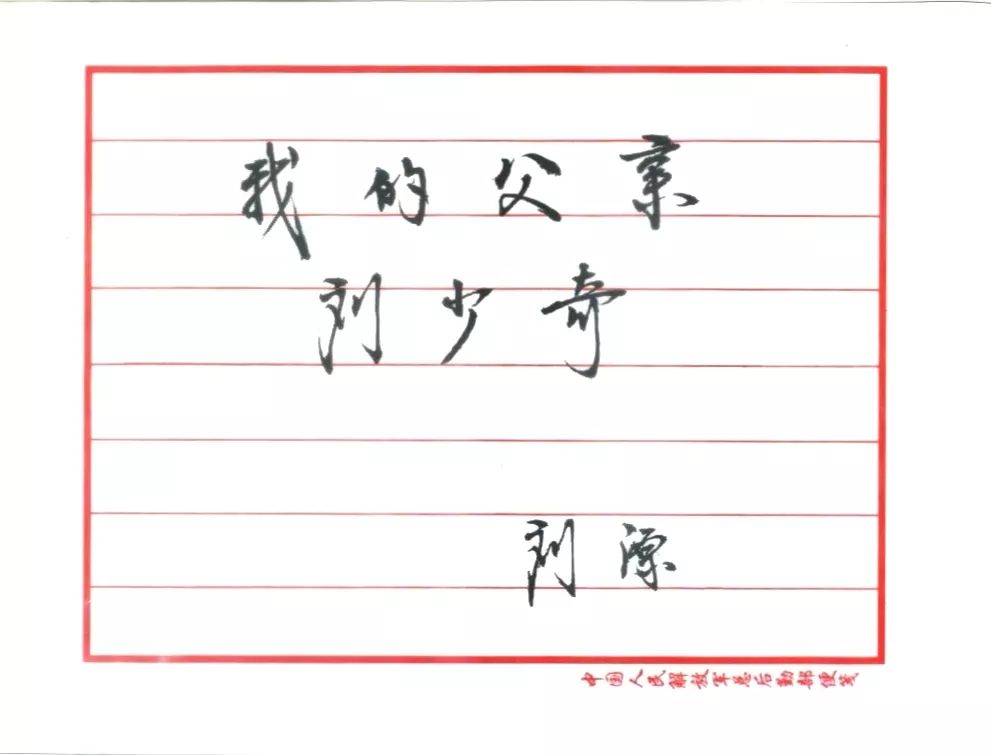 我的父亲
刘少奇
刘源
中国人民解放军总后勤部便笺